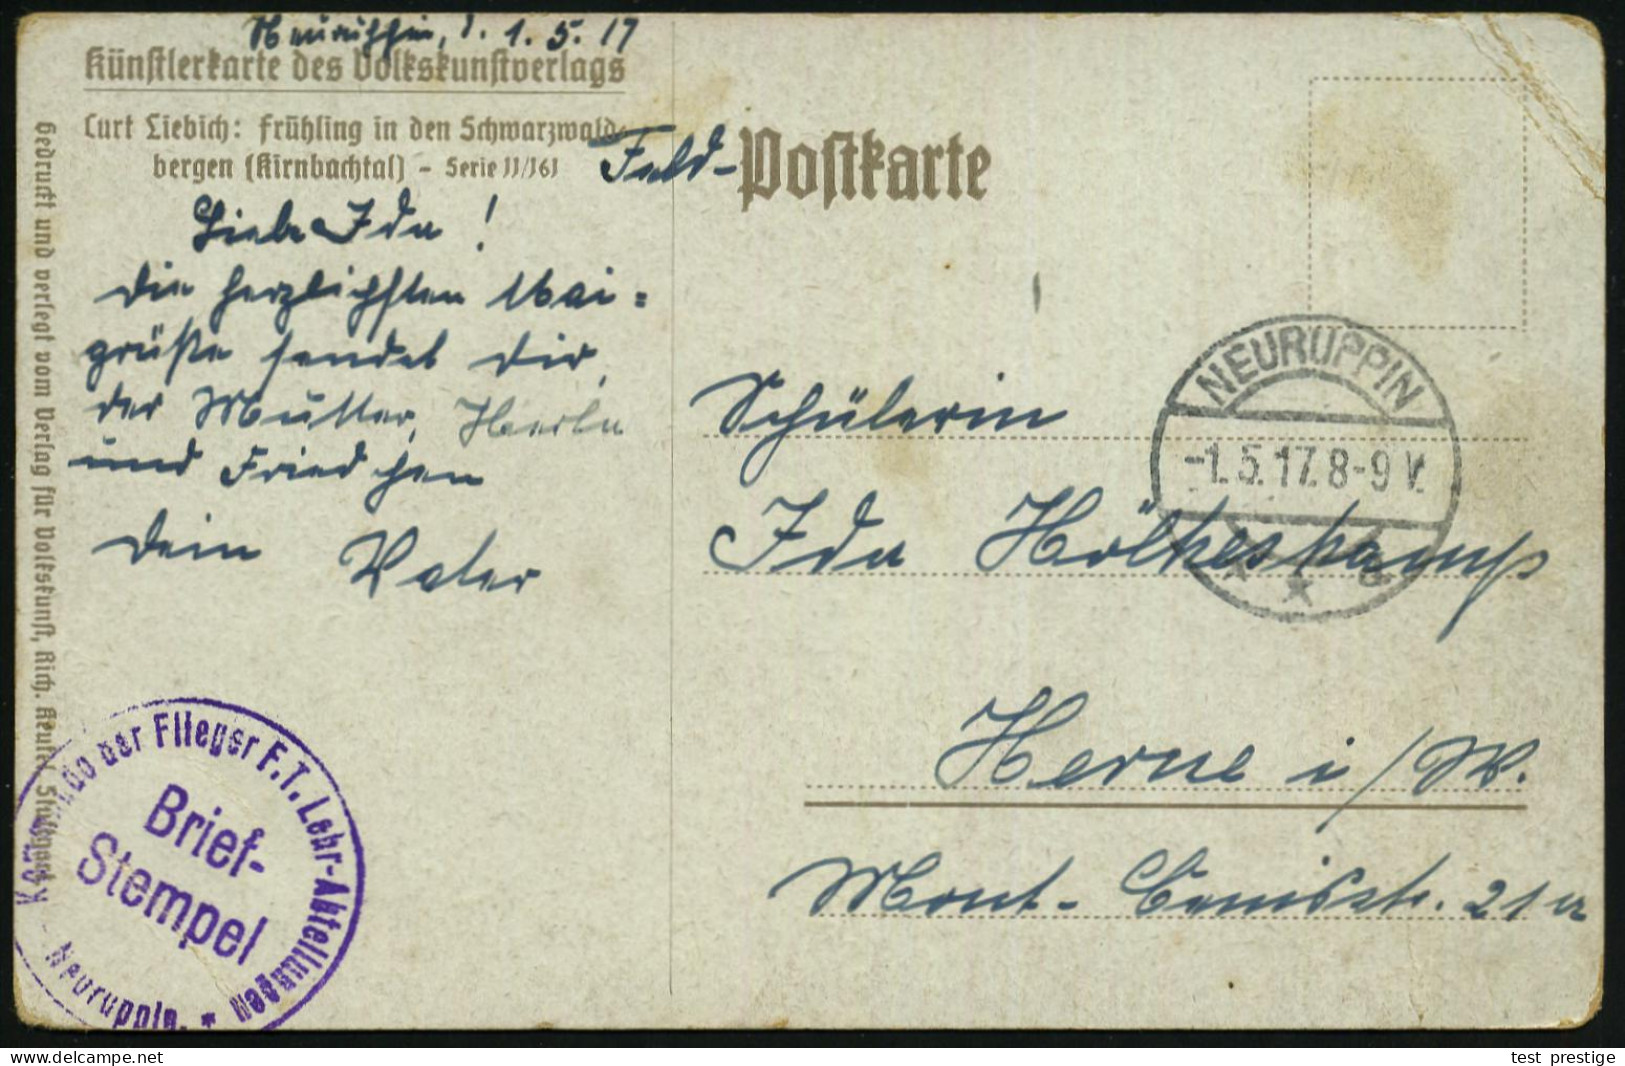 Neuruppin, d. 1. 5. 17
Künstlerkarte des Volkskunstverlags
Curt Liebich: Frühling in den Schwarzwald-
bergen (Kirnbachtal) – Serie 11/161
Liebe Ida!
die herzlichsten Mai=
grüße sendet dir,
der Mutter,
und Friedchen
dein Vater
Gedruckt und verlegt vom Verlag für Volkskunst, Rich. Keutel, Stuttgart
Kommando der Flieger F.T. Lehr-Abteilungen
Brief-
Stempel
- Neuruppin. *
Feld-Postkarte
NEURUPPIN
-1.5.17. 8-9 V.
Schülerin
Ida Hölkeskamp
Herne i/W.
Mont-Cenisstr. 21a
test_prestige